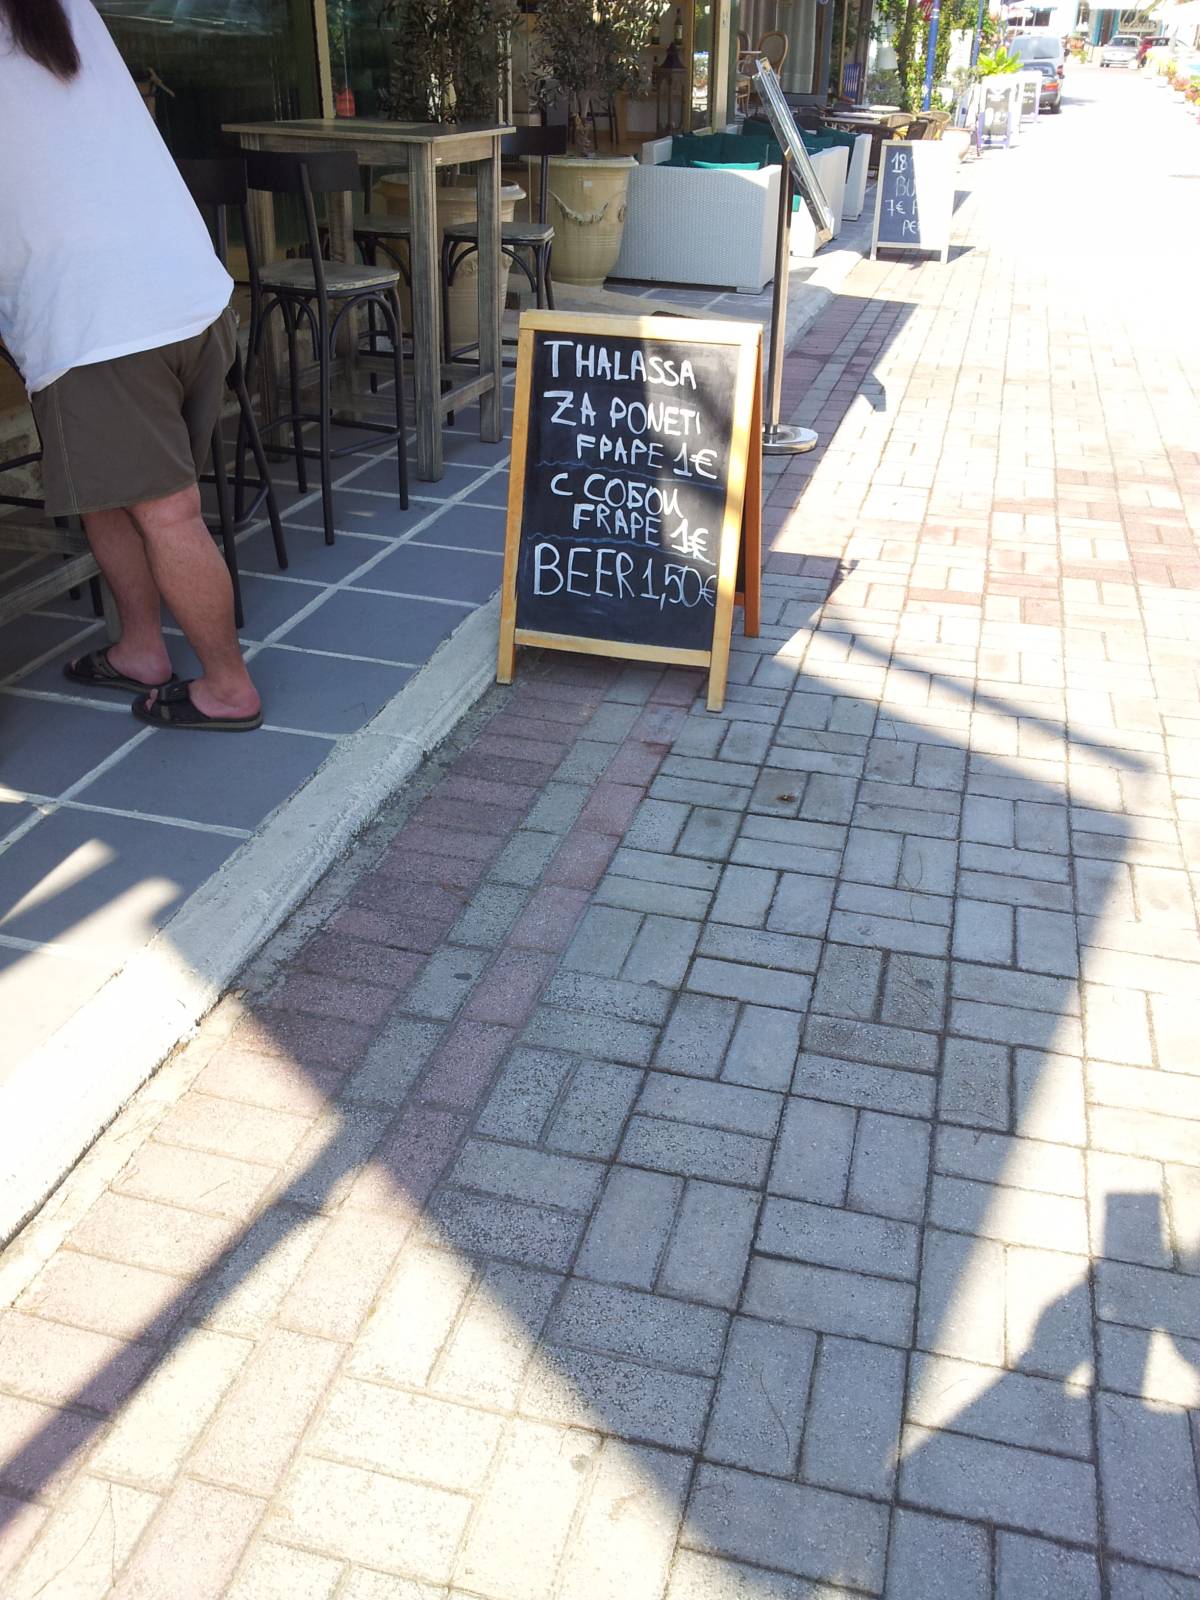 THALASSA
ZA PONETI
FPAPE 1€
С СОБОИ
FRAPE 1€
BEER 1,50€
18
7€